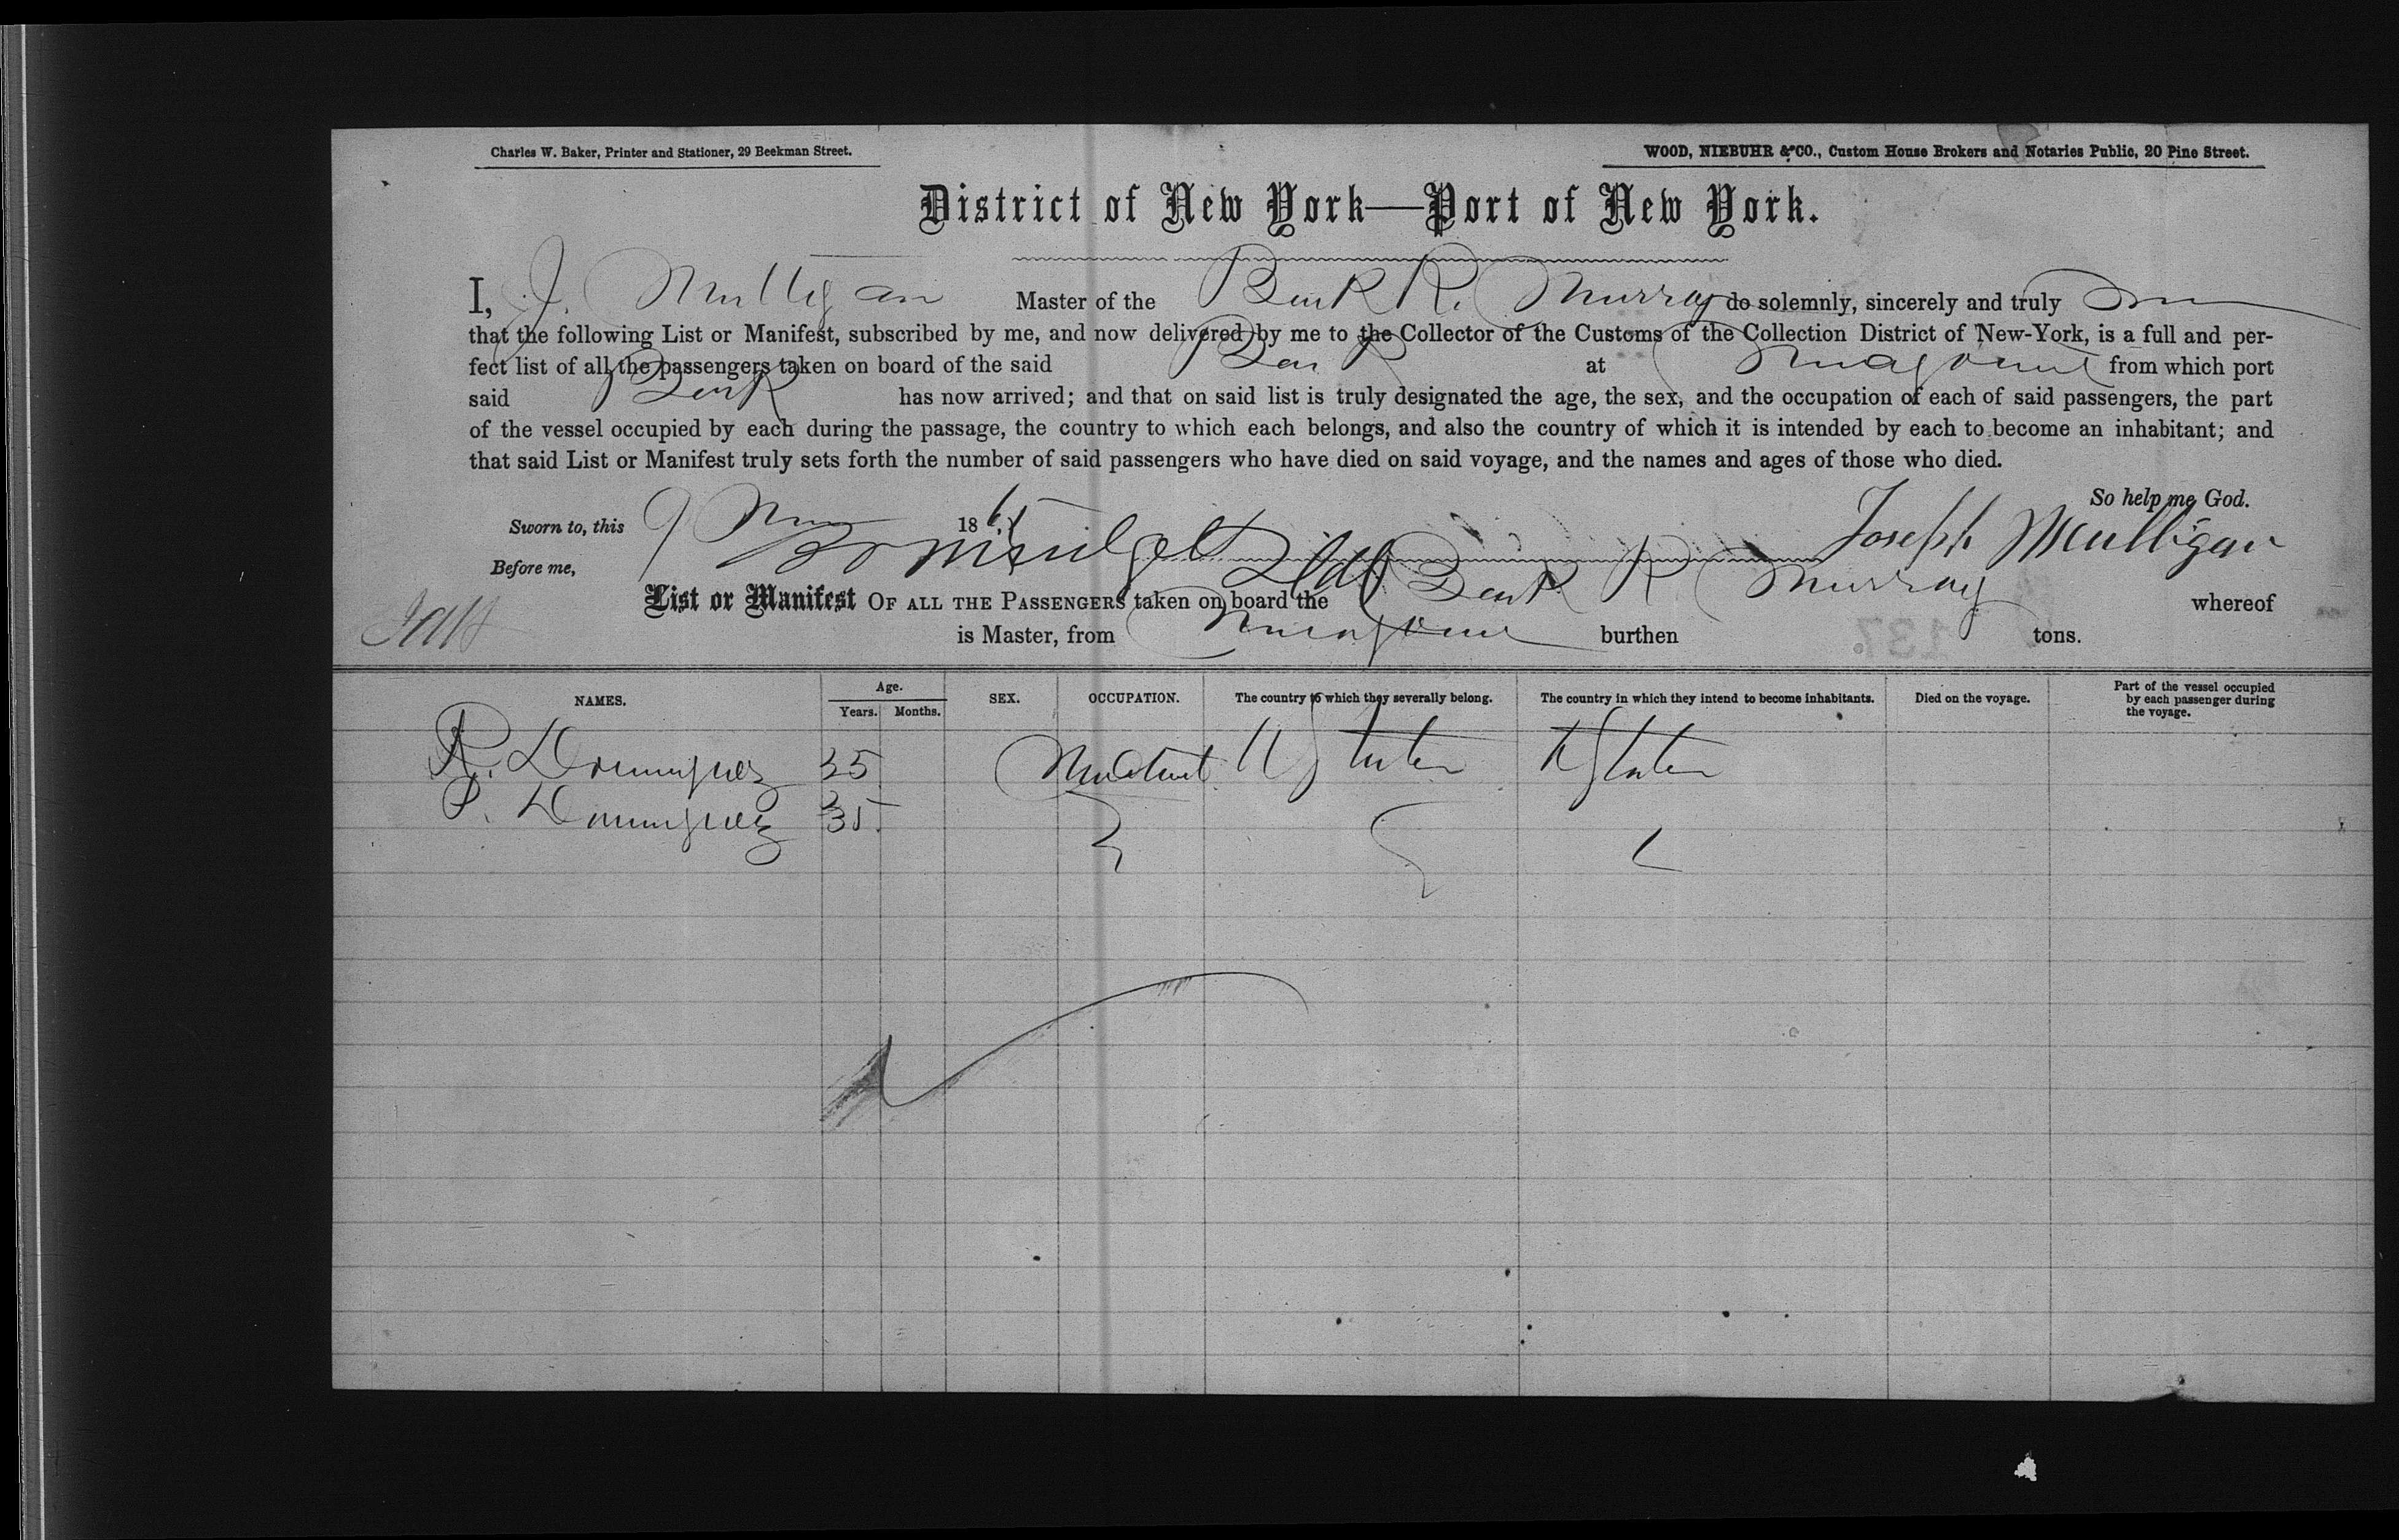 Charles W. Baker, Printer and Stationer, 29 Beekman Street.
WOOD, NIEBUHR & CO., Custom House Brokers and Notaries Public, 20 Pine Street.
District of New York—Port of New York.
I, J. Mulligan Master of the Bark R. Murray do solemnly, sincerely and truly
that the following List or Manifest, subscribed by me, and now delivered by me to the Collector of the Customs of the Collection District of New-York, is a full and per-
fect list of all the passengers taken on board of the said Bark at from which port
said Bark has now arrived; and that on said list is truly designated the age, the sex, and the occupation of each of said passengers, the part
of the vessel occupied by each during the passage, the country to which each belongs, and also the country of which it is intended by each to become an inhabitant; and
that said List or Manifest truly sets forth the number of said passengers who have died on said voyage, and the names and ages of those who died.
So help me God.
Sworn to, this 9 186
Joseph Mulligan
Before me,
List or Manifest OF ALL THE PASSENGERS taken on board the Bark R Murray whereof
is Master, from burthen tons.
137
NAMES. Age. Years. Months. SEX. OCCUPATION. The country to which they severally belong. The country in which they intend to become inhabitants. Died on the voyage. Part of the vessel occupied by each passenger during the voyage.
R. Dominguez 25 U States U States
P. Dominguez 35